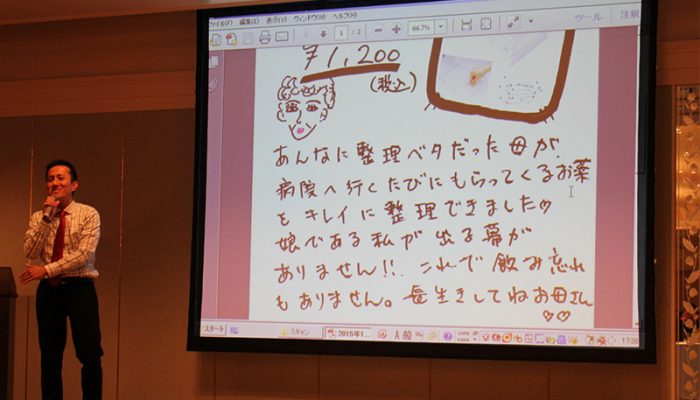 ファイル(F) 編集(E) 表示(V) ウィンドウ(W) ヘルプ(H)
1 / 2 66.7% ツール 注釈
¥1,200
(税込)
あんなに整理ベタだった母が、
病院へ行くたびにもらってくるお薬
をキレイに整理できました♡
娘である私が出る幕が
ありません!!. これで飲み忘れ
もありません。長生きしてねお母さん
♡♡
スタート スキャン 2015年1... A 般 17:36